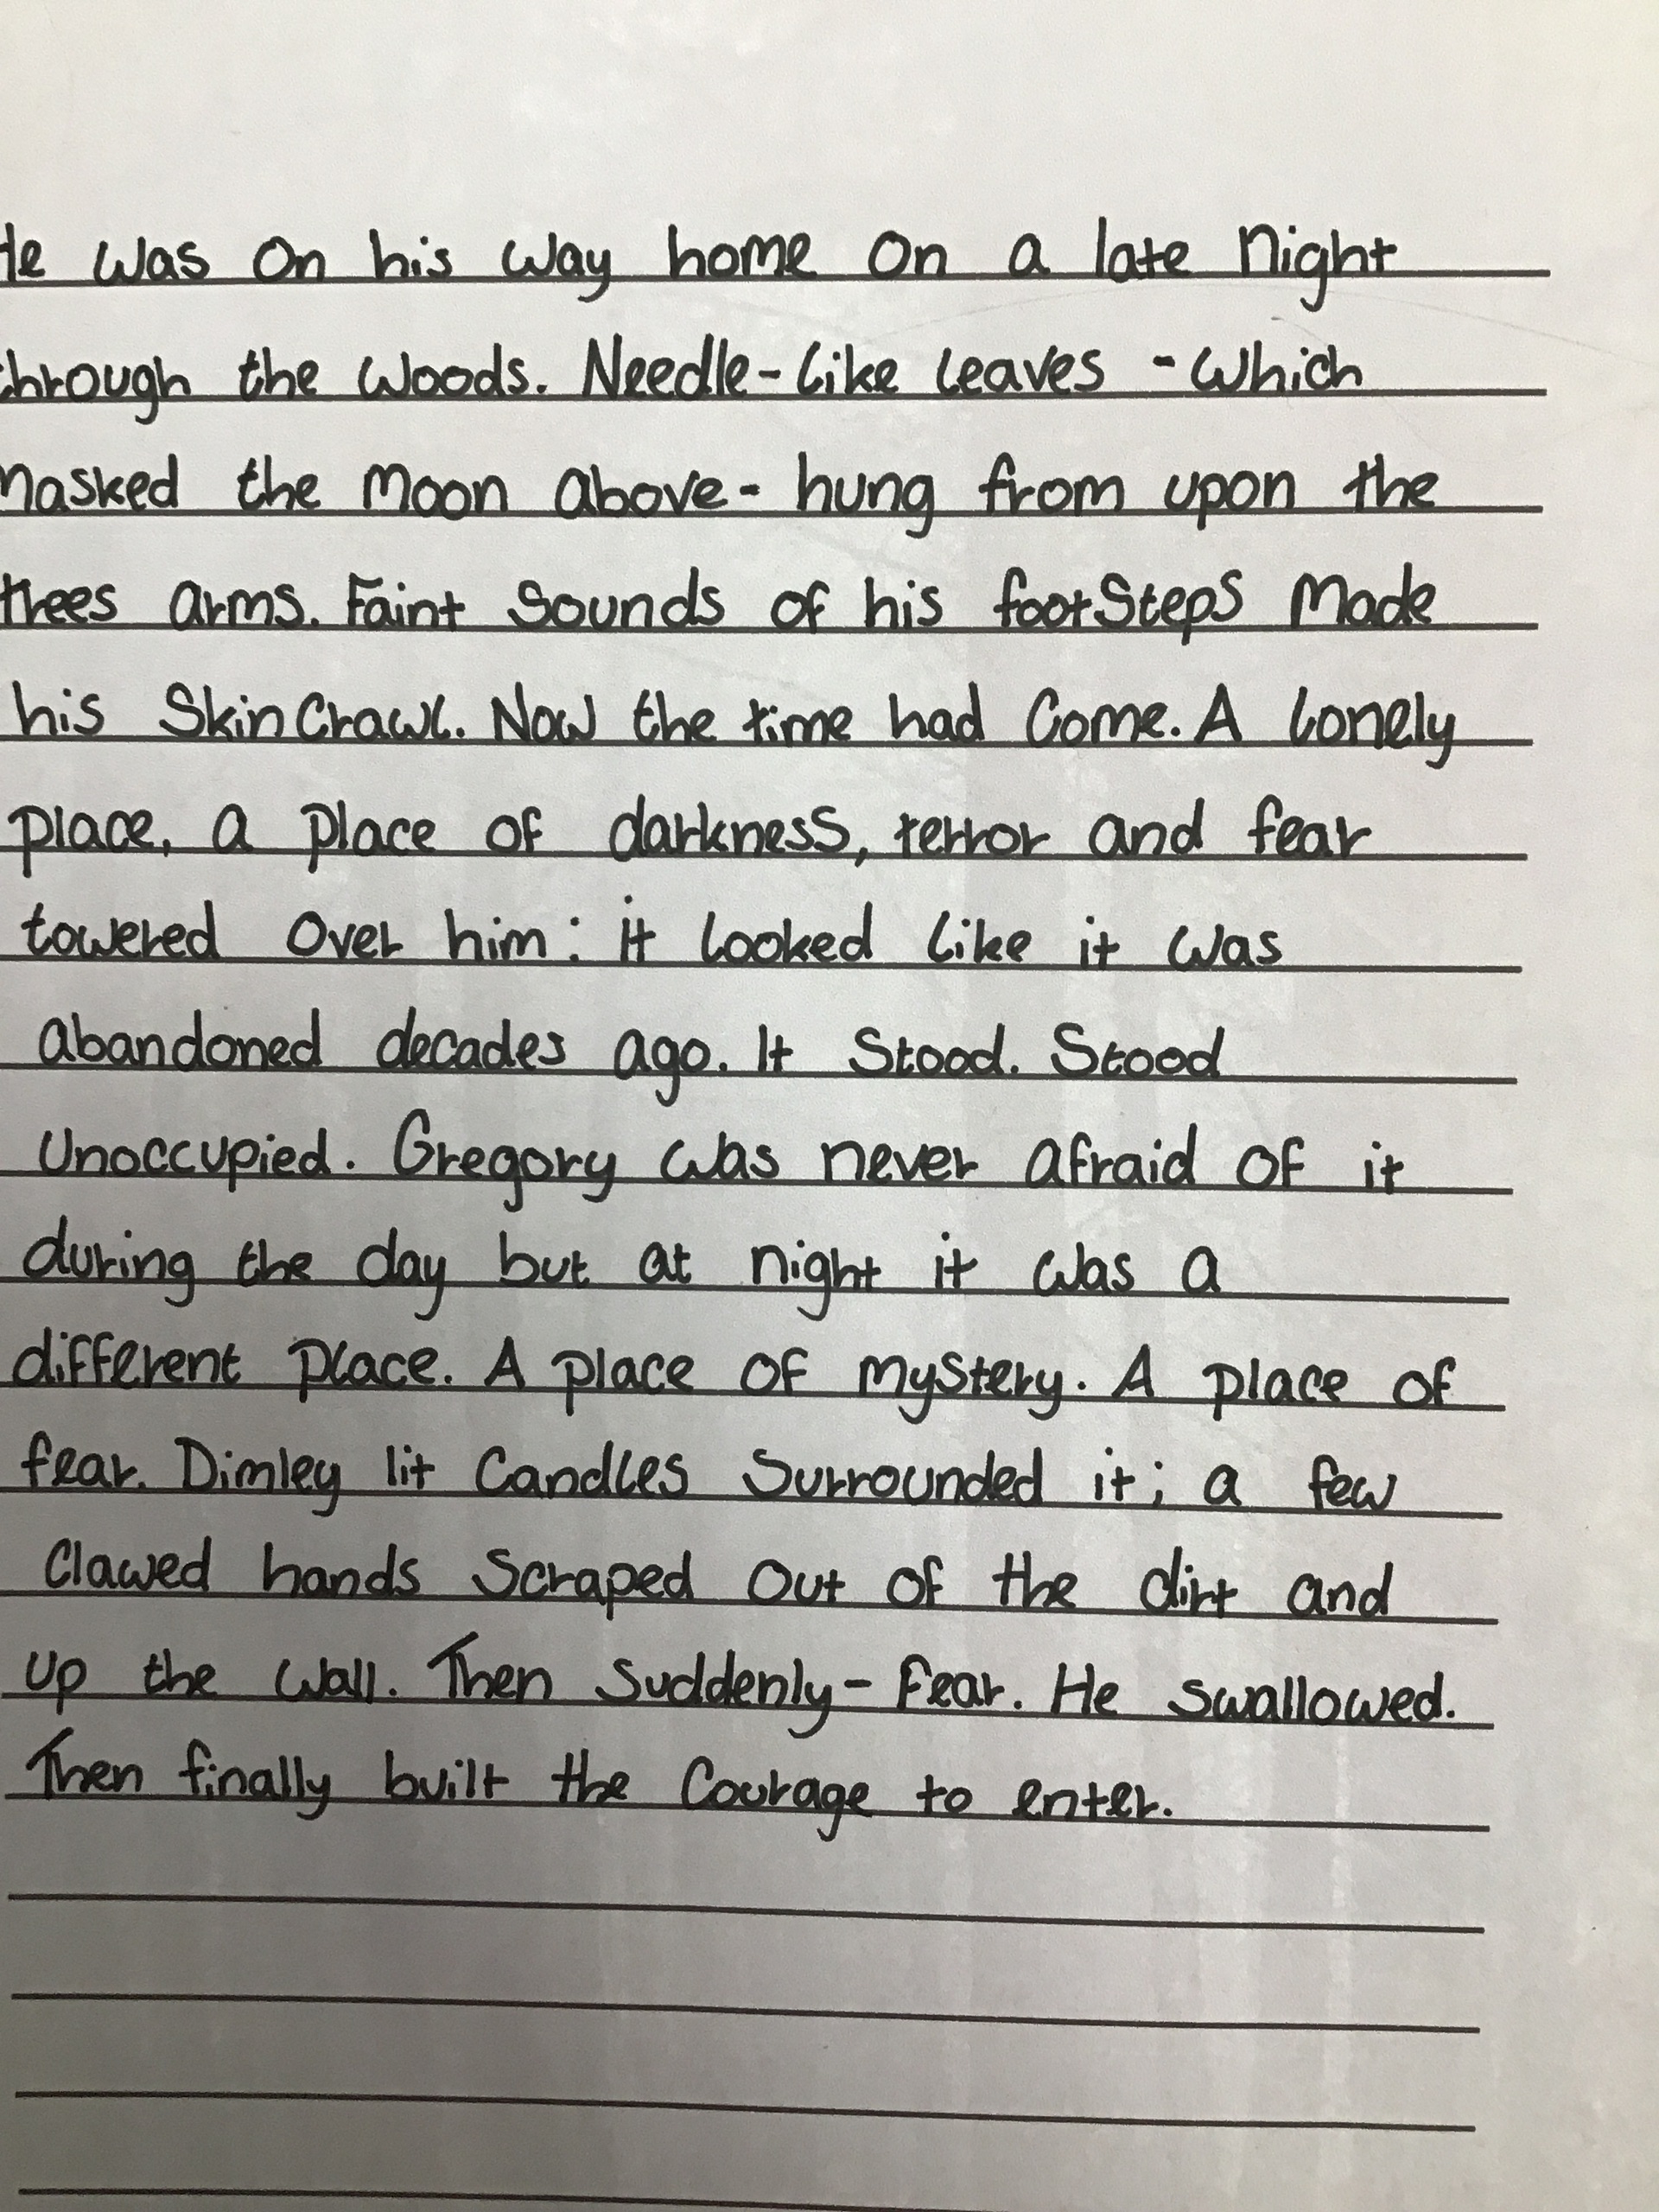 He was on his way home on a late night
through the woods. Needle-like leaves - which
masked the moon above- hung from upon the
trees arms. Faint sounds of his footsteps made
his skin crawl. Now the time had come. A lonely
place, a place of darkness, terror and fear
towered over him: it looked like it was
abandoned decades ago. It stood. Stood
unoccupied. Gregory was never afraid of it
during the day but at night it was a
different place. A place of mystery. A place of
fear. Dimley lit candles surrounded it; a few
clawed hands scraped out of the dirt and
up the wall. Then suddenly- fear. He swallowed.
Then finally built the courage to enter.